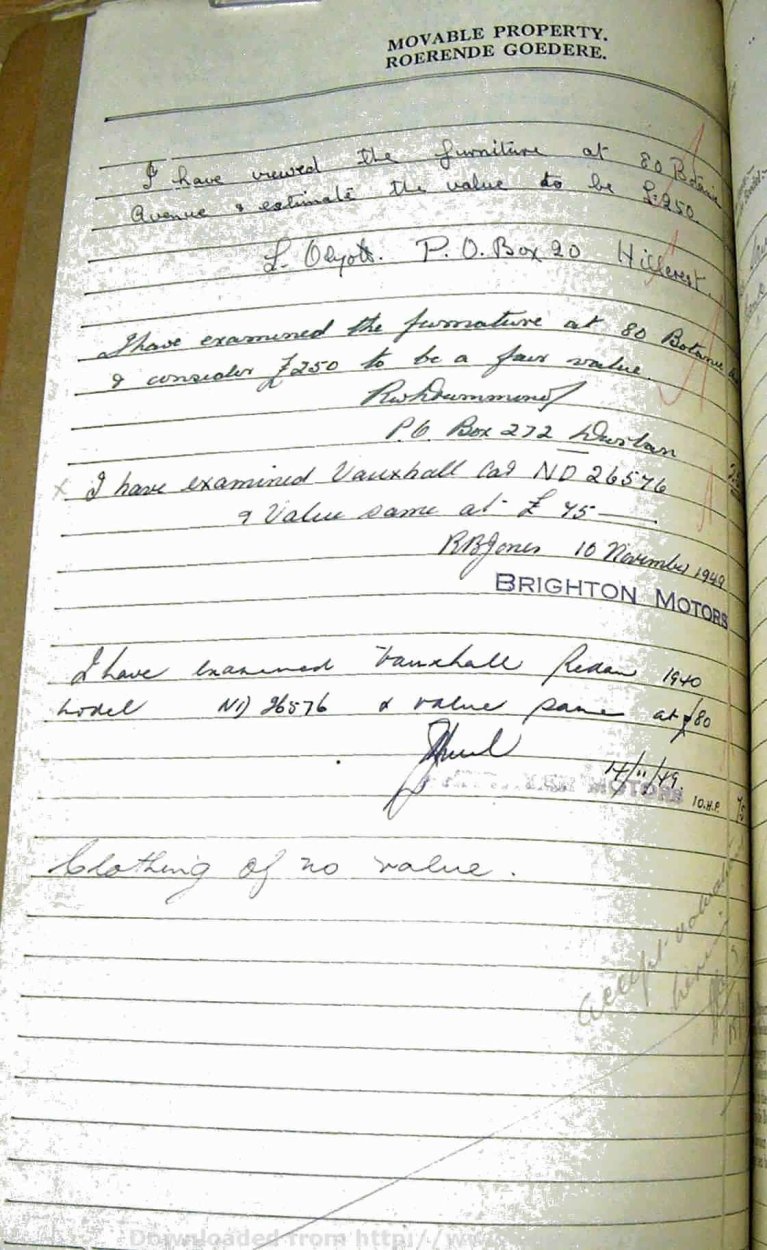 MOVABLE PROPERTY.
ROERENDE GOEDERE.
I have viewed the furniture at 80 Botanic
Avenue & estimate the value to be £250.
L. P.O. Box 20 Hillcrest.
I have examined the furnature at 80 Botanic
& consider £250 to be a fair value.
RWDrummond
P.O. Box 272 Durban
x I have examined Vauxhall Car ND 26576
& Value same at £75
RBJones 10 November 1949
BRIGHTON MOTORS
I have examined Vauxhall Sedan 1940
Model ND 26576 & value same at £80
14/11/49.
MOTORS 10.H.P. 75
Clothing of no value.
Accept
Downloaded from http://www